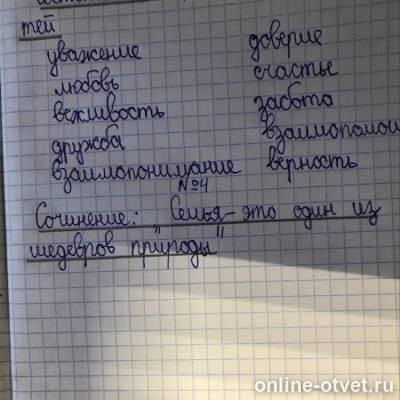 тей
уважение доверие
любовь счастье
вежливость забота
дружба взаимопомощ
взаимопонимание верность
№4
Сочинение: "Семья - это один из
шедевров природы"
online-otvet.ru